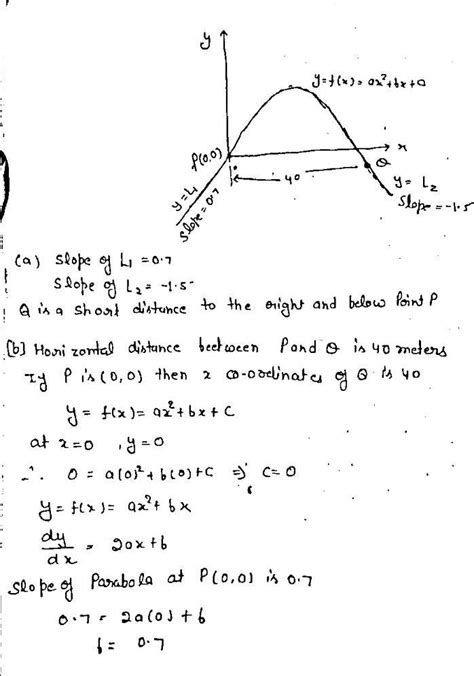 y
y=f(x)= ax²+bx+0
P(0,0)
x
Q
40
y= L₁
slope=0.7
y= L₂
slope=-1.5
(a) slope of L₁ =0.7
slope of L₂= -1.5
Q is a short distance to the right and below Point P
(b) Horizontal distance between P and Q is 40 meters
If P is (0,0) then x co-ordinates of Q is 40
y= f(x)= ax²+bx+C
at x=0 , y=0
∴ 0 = a(0)²+ b(0)+C ⇒ C=0
y= f(x)= ax²+ bx
dy/dx = 2ax+b
slope of Parabola at P(0,0) is 0.7
0.7 = 2a(0)+b
b= 0.7